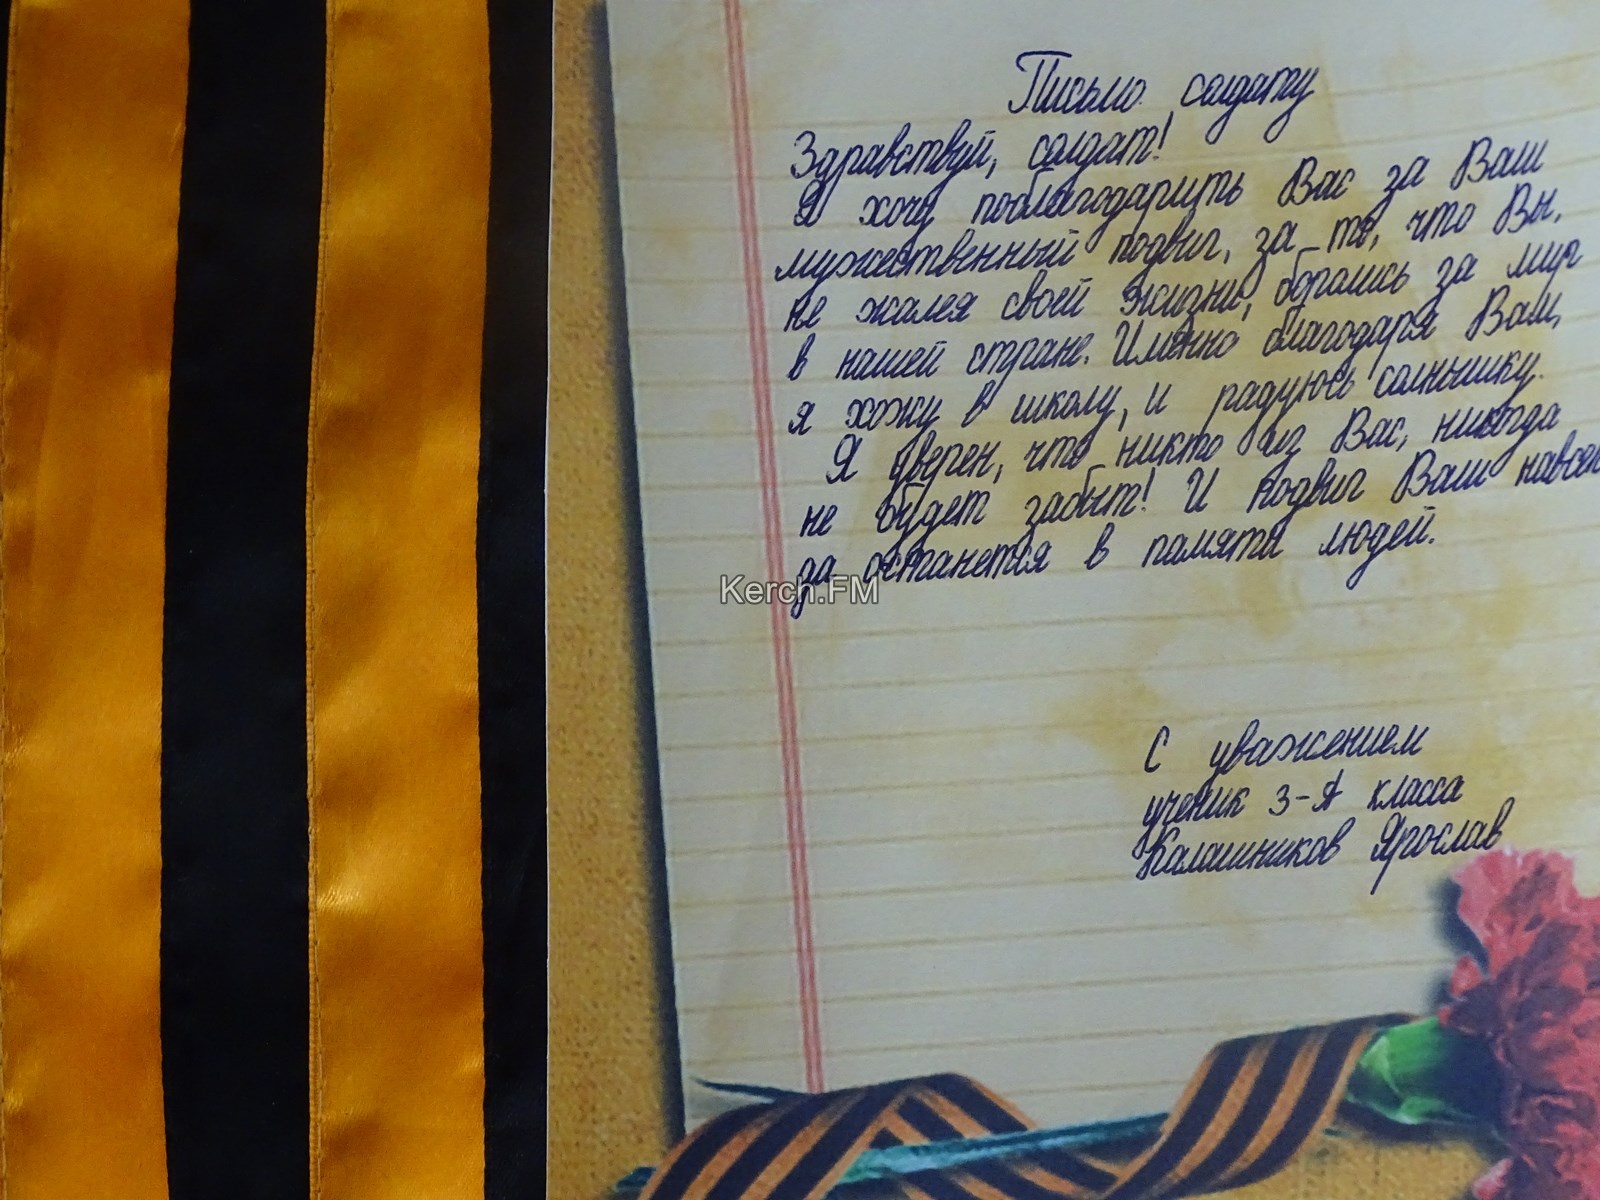 Письмо солдату
Здравствуй, солдат!
Я хочу поблагодарить Вас за Ваш
мужественный подвиг, за то, что Вы,
не жалея своей жизни, боролись за мир
в нашей стране. Именно благодаря Вам,
я хожу в школу, и радуюсь солнышку.
Я уверен, что никто из Вас, никогда
не будет забыт! И подвиг Ваш навсег
да останется в памяти людей.
Kerch.FM
С уважением
ученик 3-А класса
Калашников Ярослав